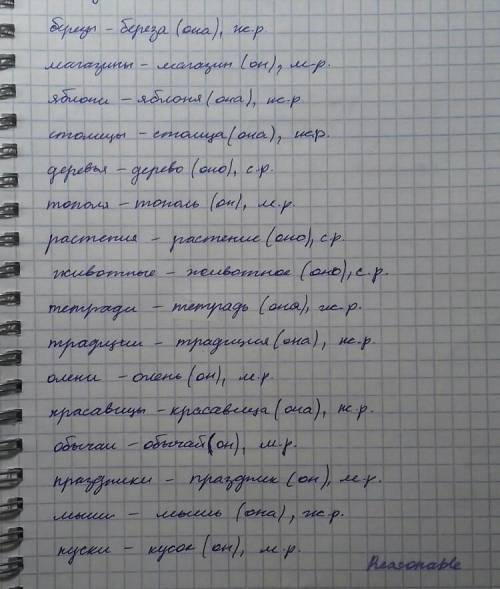 березы – береза (она), ж.р.
магазины – магазин (он), м.р.
яблони – яблоня (она), ж.р.
столицы – столица (она), ж.р.
деревья – дерево (оно), с.р.
тополя – тополь (он), м.р.
растения – растение (оно), с.р.
животные – животное (оно), с.р.
тетради – тетрадь (она), ж.р.
традиции – традиция (она), ж.р.
олени – олень (он), м.р.
красавицы – красавица (она), ж.р.
обычаи – обычай (он), м.р.
праздники – праздник (он), м.р.
мыши – мышь (она), ж.р.
куски – кусок (он), м.р.
Reasonable